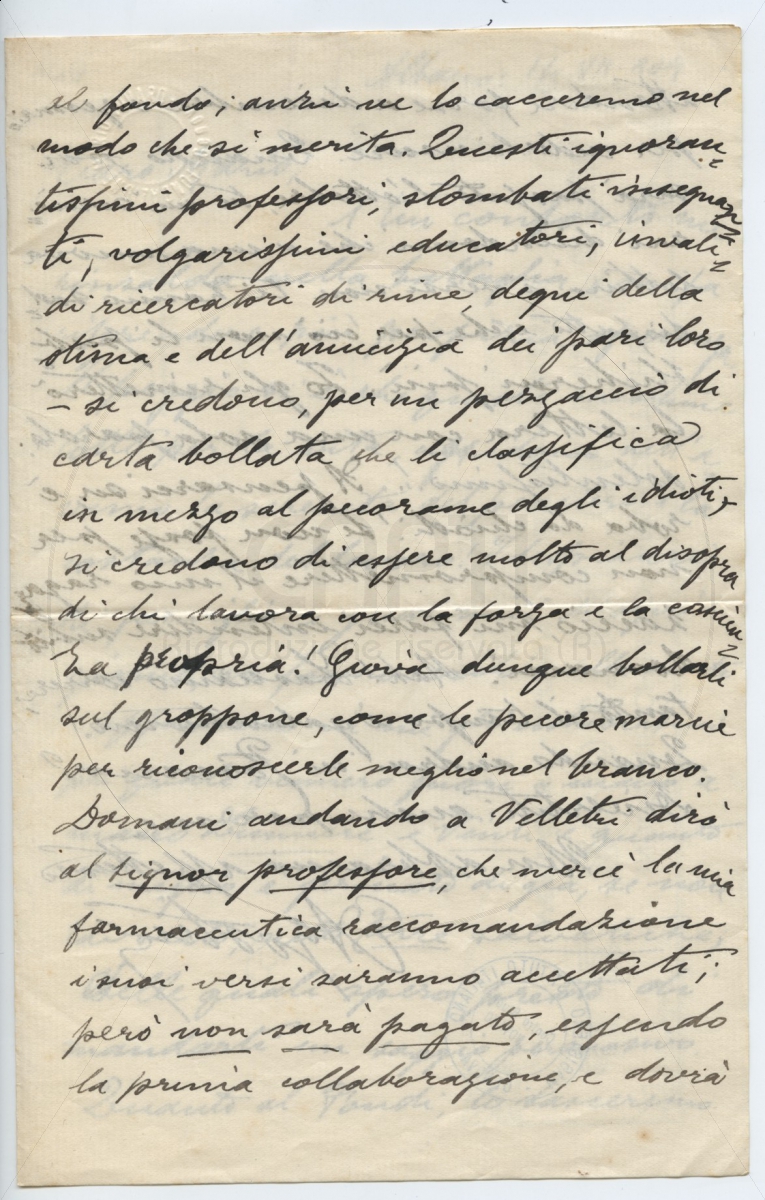 al fondo; anzi ve lo cacceremo nel
modo che si merita. Questi ignoran=
tissimi professori, slombati insegnan=
ti, volgarissimi educatori, invali=
di ricercatori di rime, degni della
stima e dell'amicizia dei pari loro
– si credono, per un pezzaccio di
carta bollata che li classifica
in mezzo al pecorame degli idioti, –
si credono di essere molto al disopra
di chi lavora con la forza e la coscien=
za propria! Giova dunque bollarli
sul groppone, come le pecore marcie
per riconoscerle meglio nel branco.
Domani andando a Velletri dirò
al signor professore, che mercè la mia
farmaceutica raccomandazione
i suoi versi saranno accettati;
però non sarà pagato, essendo
la prima collaborazione, e dovrà